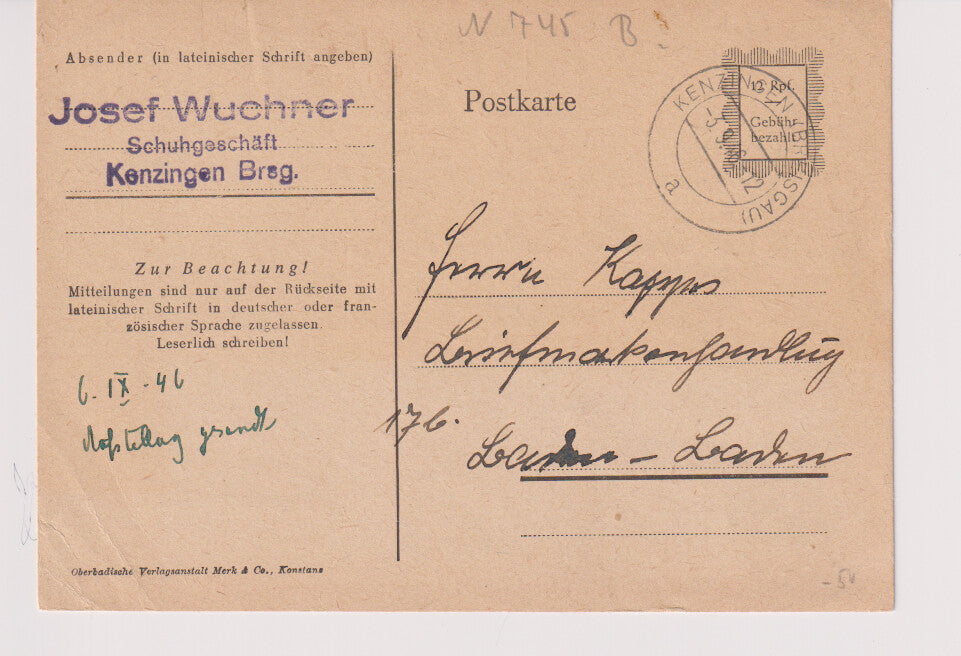 N 745 B.
Absender (in lateinischer Schrift angeben)
Josef Wuchner
Schuhgeschäft
Kenzingen Brsg.
Postkarte
12 Rpf.
Gebühr
bezahlt
KENZINGEN (BREISGAU)
a
Zur Beachtung!
Mitteilungen sind nur auf der Rückseite mit
lateinischer Schrift in deutscher oder fran-
zösischer Sprache zugelassen.
Leserlich schreiben!
Herrn Kapps
Briefmarkenhandlug
17b.
Baden-Baden
6. IX. - 46
gesandt
Oberbadische Verlagsanstalt Merk & Co., Konstanz